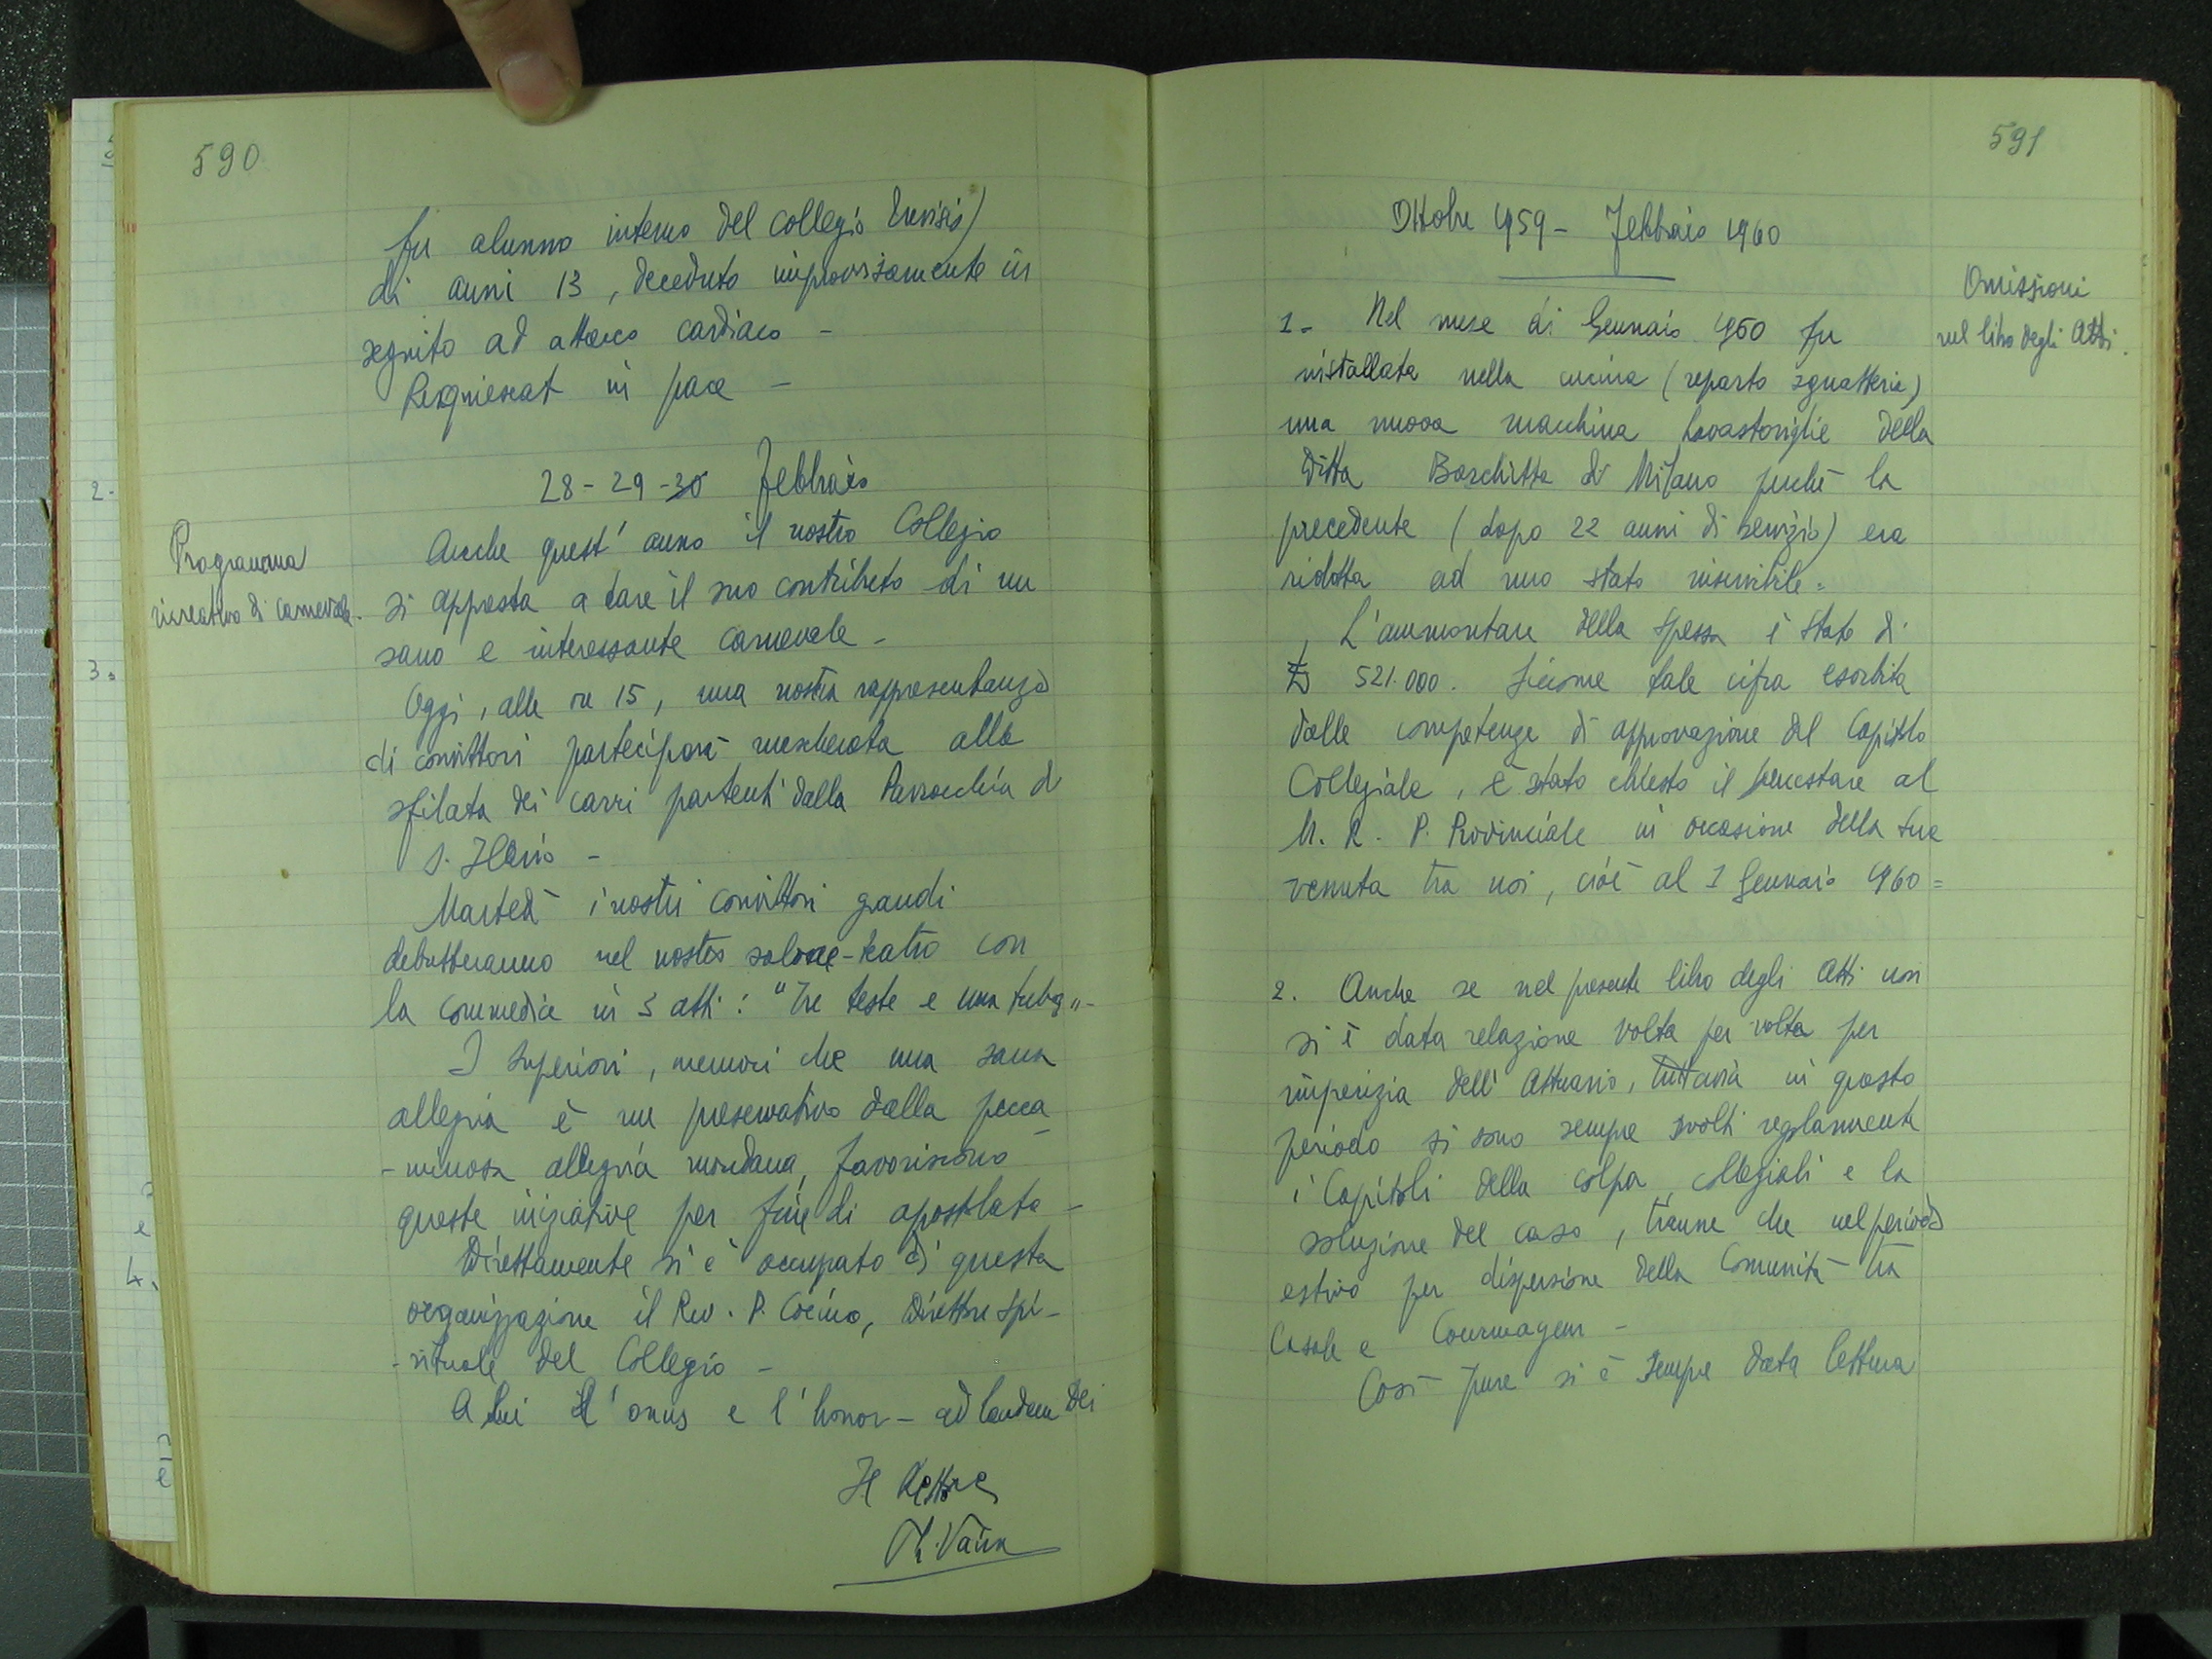 590
fu alunno interno del collegio Trevisio)
di anni 13, deceduto improvvisamente in
seguito ad attacco cardiaco -
Requiescat in pace -
28 - 29 - 30 Febbraio
Programma
ricreativo di carnevale.
Anche quest' anno il nostro Collegio
si appresta a dare il suo contributo di un
sano e interessante carnevale -
Oggi, alle ore 15, una nostra rappresentanza
di convittori parteciperà mascherata alla
sfilata dei carri partenti dalla Parrocchia di
S. Ilario -
Martedì i nostri convittori grandi
debutteranno nel nostro salone-teatro con
la commedia in 3 atti: "Tre teste e una tuba" -
I Superiori, memori che una sana
allegria è un preservativo dalla pecca
- minosa allegria mondana, favoriscono
queste iniziative per fine di apostolato -
Direttamente si è occupato di questa
organizzazione il Rev. P. Cocino, Direttore Spi-
- rituale del Collegio -
A Lui l'onus e l'honor - ad laudem Dei
Il Rettore
591
Ottobre 1959 - Febbraio 1960
Omissioni
nel libro degli Atti.
1 - Nel mese di Gennaio 1960 fu
installata nella cucina (reparto sguatteria)
una nuova macchina Lavastoviglie della
Ditta Boschitta di Milano perchè la
precedente (dopo 22 anni di servizio) era
ridotta ad uno stato inservibile =
L'ammontare della spesa è stato di
£ 521.000. Siccome tale cifra esorbita
dalle competenze di approvazione del Capitolo
Collegiale, è stato chiesto il benestare al
M. R. P. Provinciale in occasione della sua
venuta tra noi, cioè al 1 Gennaio 1960 =
2. Anche se nel presente libro degli Atti non
si è data relazione volta per volta per
imperizia dell' Attuario, tuttavia in questo
periodo si sono sempre svolti regolarmente
i Capitoli della colpa, collegiali e la
soluzione del caso, tranne che nel periodo
estivo per dispersione della Comunità tra
Casale e Courmayeur -
Così pure si è sempre data lettura
2 -
3 =
e
4.
e